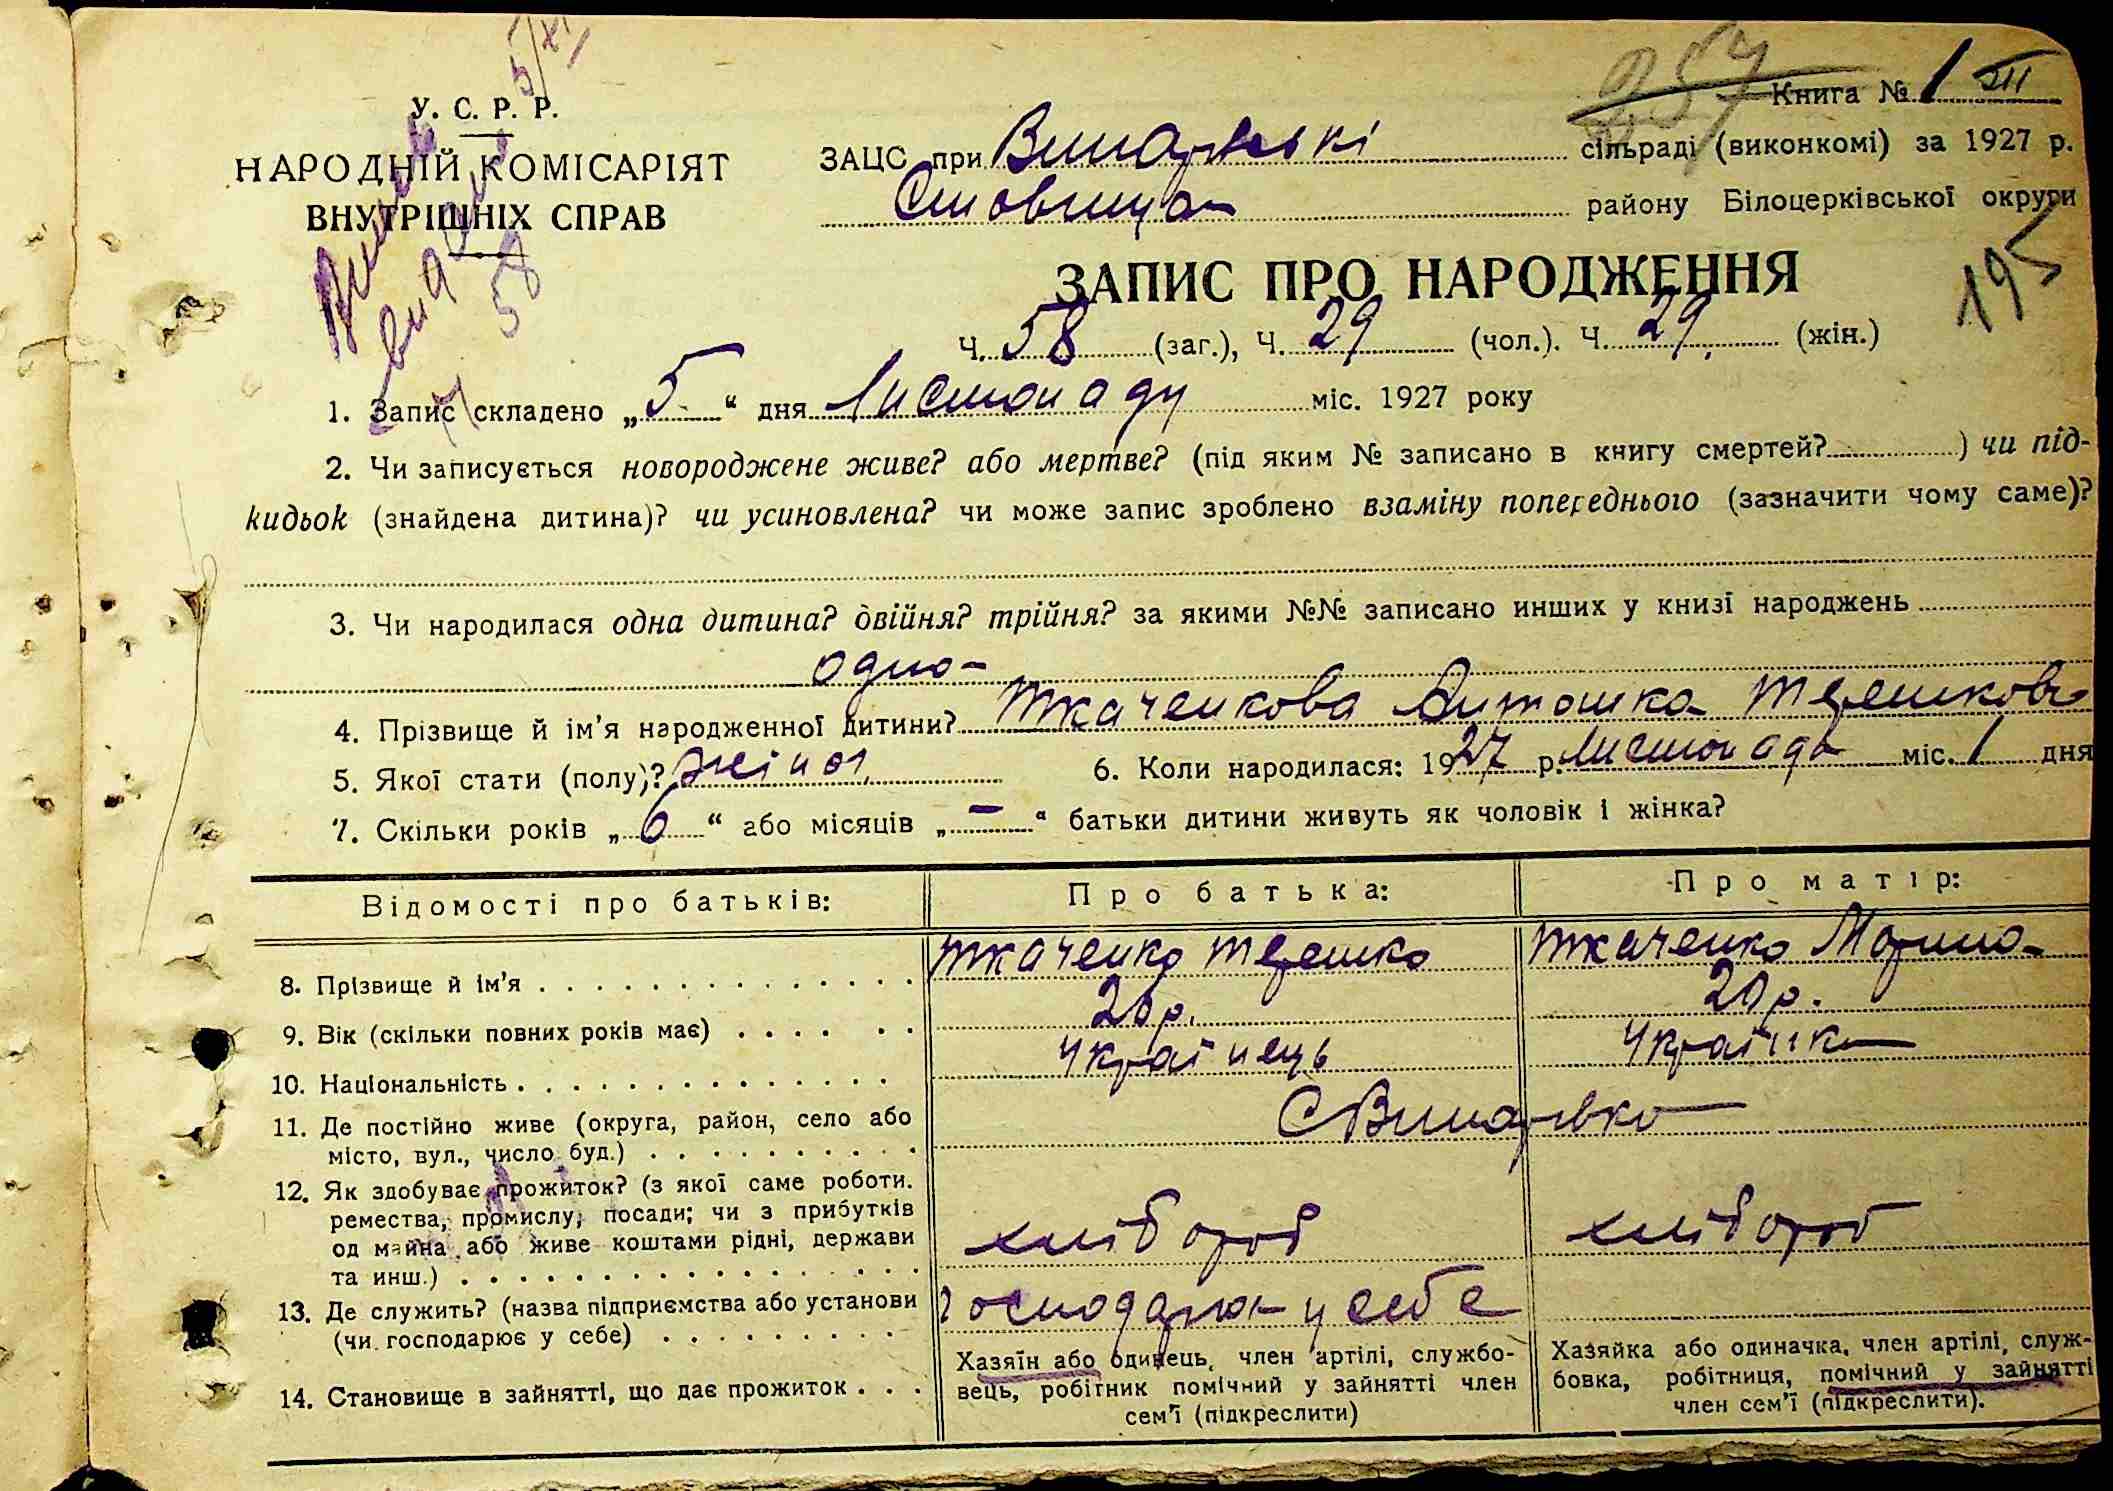 5/XI
257
Книга № 1 VII
У. С. Р. Р.
НАРОДНІЙ КОМІСАРІЯТ
ВНУТРІШНІХ СПРАВ
видано
58
ЗАЦС при Винарські сільраді (виконкомі) за 1927 р.
района Білоцерківської округи
195
ЗАПИС ПРО НАРОДЖЕННЯ
Ч. 58 (заг.), Ч. 29 (чол.). Ч. 29 (жін.)
1. Запис складено „5“ дня Листопаду міс. 1927 року
2. Чи записується новороджене живе? або мертве? (під яким № записано в книгу смертей? ) чи під-
кидьок (знайдена дитина)? чи усиновлена? чи може запис зроблено взаміну попереднього (зазначити чому саме)?
3. Чи народилася одна дитина? двійня? трійня? за якими №№ записано инших у книзі народжень
одно
4. Прізвище й ім'я народженної дитини? Ткаченкова
5. Якої стати (полу)? жіноч. 6. Коли народилася: 1927 р. Листопада міс. 1 дня
7. Скільки років „6“ або місяців „—“ батьки дитини живуть як чоловік і жінка?
Відомості про батьків: Про батька: Про матір:
8. Прізвище й ім'я Ткаченко Терешко Ткаченко Марина
9. Вік (скільки повних років має) 20 р. 20 р.
10. Національність Українець Українка
11. Де постійно живе (округа, район, село або
місто, вул., число буд.) С Винарівка
12. Як здобуває прожиток? (з якої саме роботи.
ремества, промислу, посади; чи з прибутків
од майна або живе коштами рідні, держави
та инш.) хлібороб хлібороб
13. Де служить? (назва підприємства або установи
(чи господарює у себе) господарює у себе
14. Становище в зайнятті, що дає прожиток
Хазяїн або одинець, член артілі, службо-
вець, робітник помічний у зайнятті член
сем'ї (підкреслити)
Хазяйка або одиначка, член артілі, служ-
бовка, робітниця, помічний у зайнятті
член сем'ї (підкреслити).